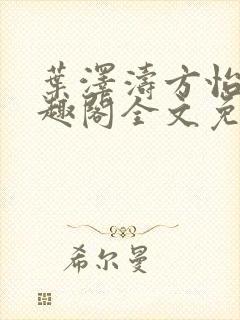 葉澤濤方怡
趣閣全文免
希尔曼